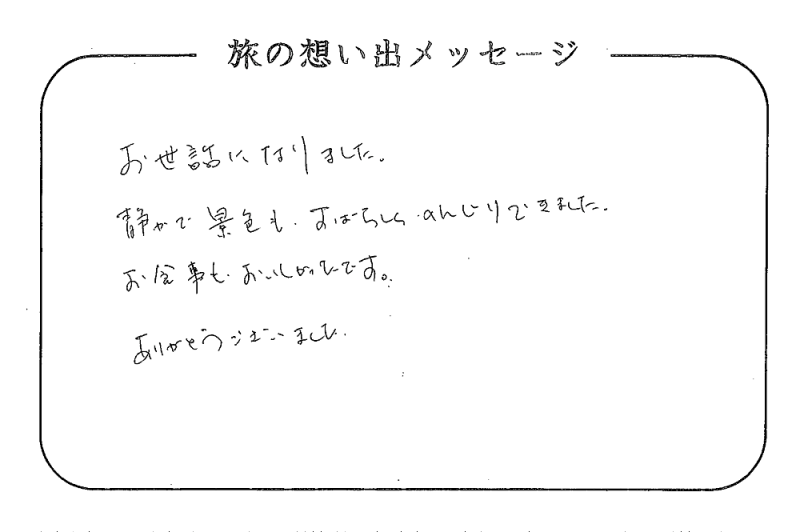 旅の想い出メッセージ
お世話になりました。
静かで景色も、すばらしく、のんびりできました。
お食事もおいしかったです。
ありがとうございました。